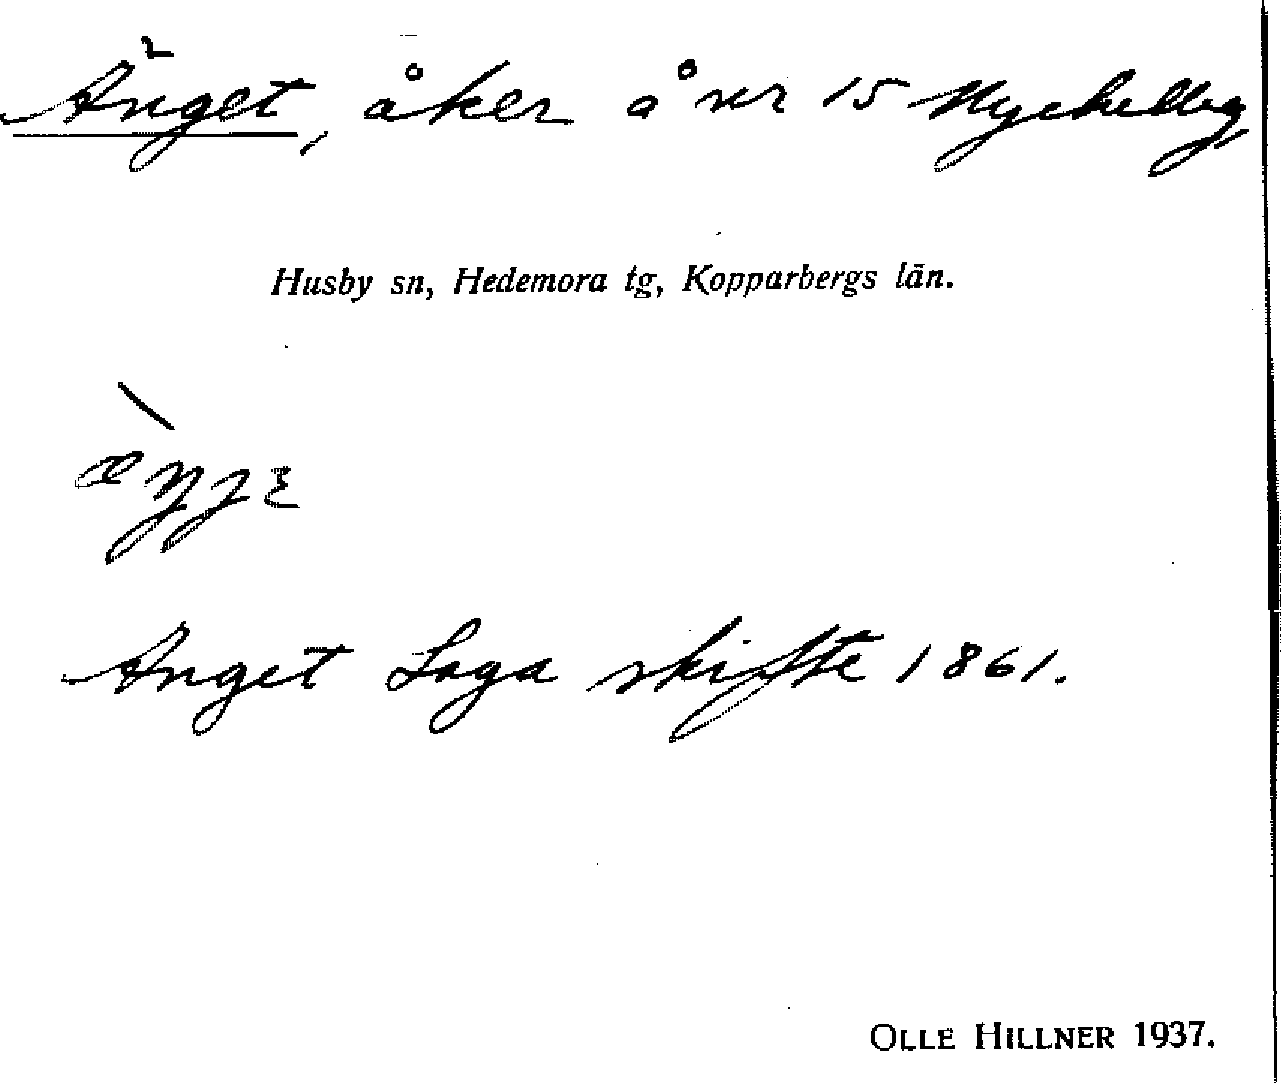 Änget, åker å nr 15 Myckelby,
Husby sn, Hedemora tg, Kopparbergs län.
Änget Laga skifte 1861.
OLLE HILLNER 1937.